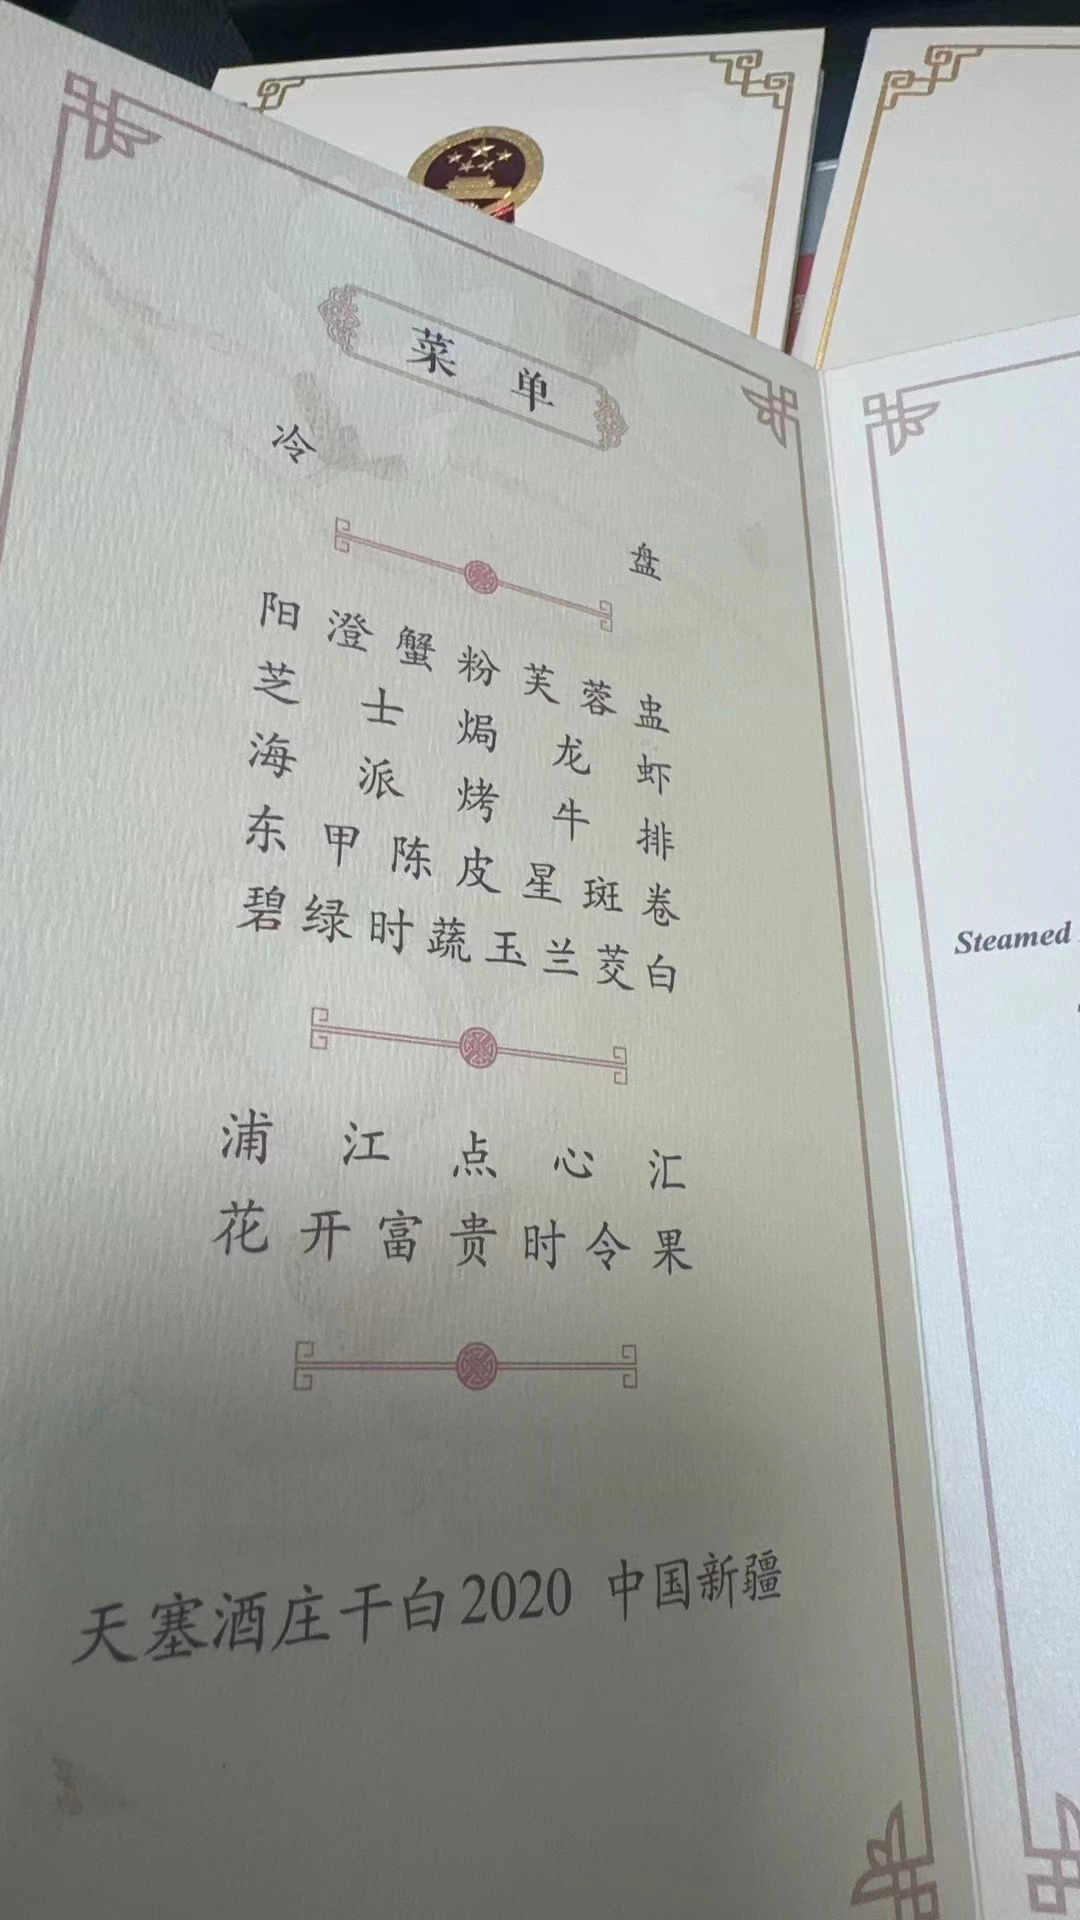 菜单
冷盘
阳澄蟹粉芙蓉盅
芝士焗龙虾
海派烤牛排
东甲陈皮星斑卷
碧绿时蔬玉兰茭白
浦江点心汇
花开富贵时令果
天塞酒庄干白2020 中国新疆
Steamed